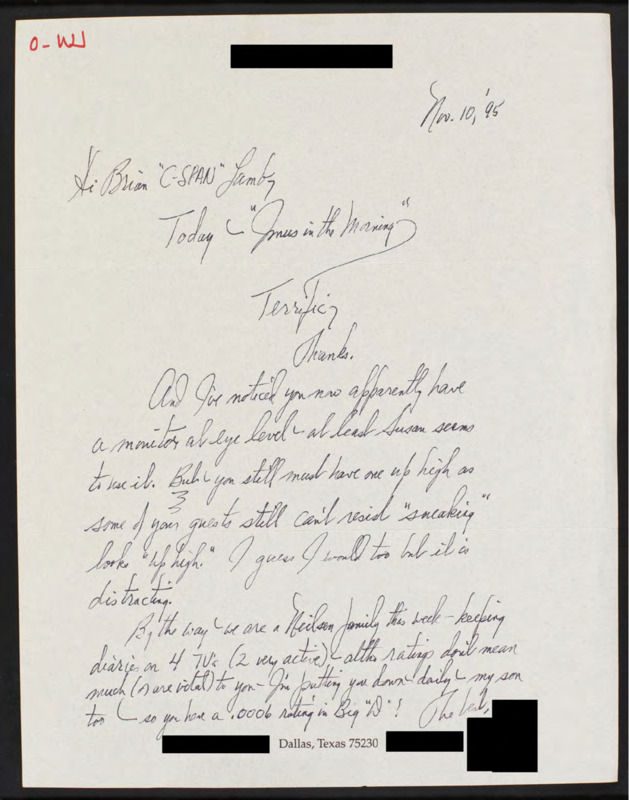 O-W
Nov. 10, '95
Hi Brian "C-SPAN" Lamb,
Today - "Imus in the Morning"
Terrific,
Thanks.
And I've noticed you now apparently have
a monitor at eye level - at least Susan seems
to use it. But - you still must have one up high as
some of your guests still can't resist "sneaking"
looks "up high." I guess I would too but it is
distracting.
By the way - we are a Neilsen family this week - keeping
diaries on 4 TV's (2 very active) - altho ratings don't mean
much (or are vital) to you - I'm putting you down daily - my son
too - so you have a .0006 rating in Big "D"! The best,
Dallas, Texas 75230